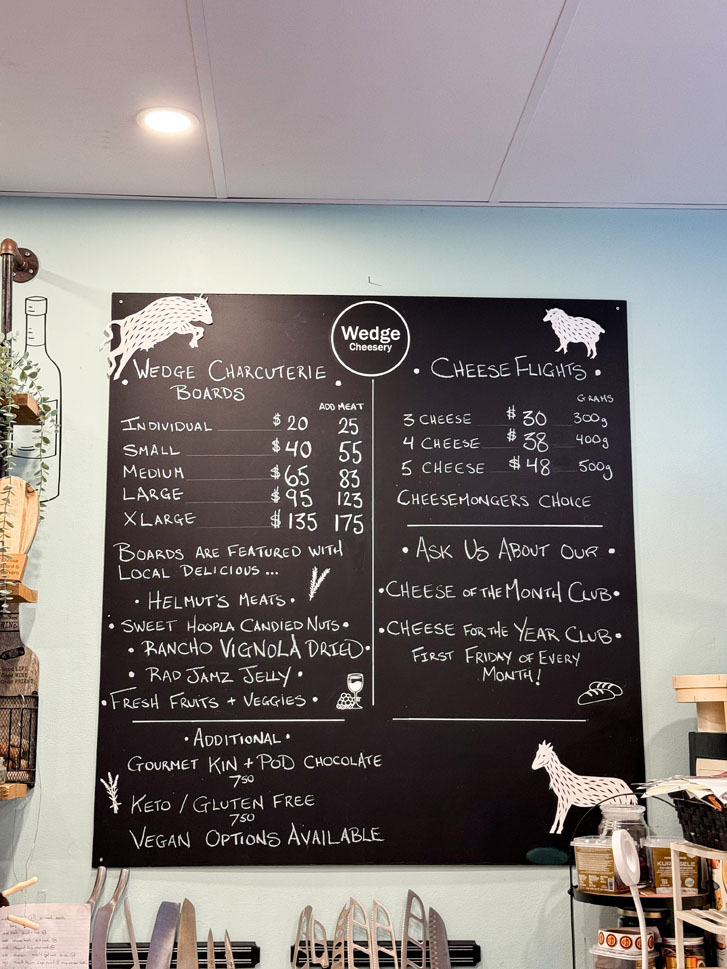 Wedge
Cheesery
WEDGE CHARCUTERIE
BOARDS
ADD MEAT
INDIVIDUAL $20 25
SMALL $40 55
MEDIUM $65 83
LARGE $95 123
XLARGE $135 175
BOARDS ARE FEATURED WITH
LOCAL DELICIOUS ...
• HELMUT'S MEATS •
• SWEET HOOPLA CANDIED NUTS •
• RANCHO VIGNOLA DRIED •
• RAD JAMZ JELLY •
• FRESH FRUITS + VEGGIES •
• CHEESE FLIGHTS •
GRAMS
3 CHEESE $30 300g
4 CHEESE $38 400g
5 CHEESE $48 500g
CHEESEMONGERS CHOICE
• ASK US ABOUT OUR •
• CHEESE OF THE MONTH CLUB •
• CHEESE FOR THE YEAR CLUB •
FIRST FRIDAY OF EVERY
MONTH!
• ADDITIONAL •
GOURMET KIN + POD CHOCOLATE
7.50
KETO / GLUTEN FREE
7.50
VEGAN OPTIONS AVAILABLE